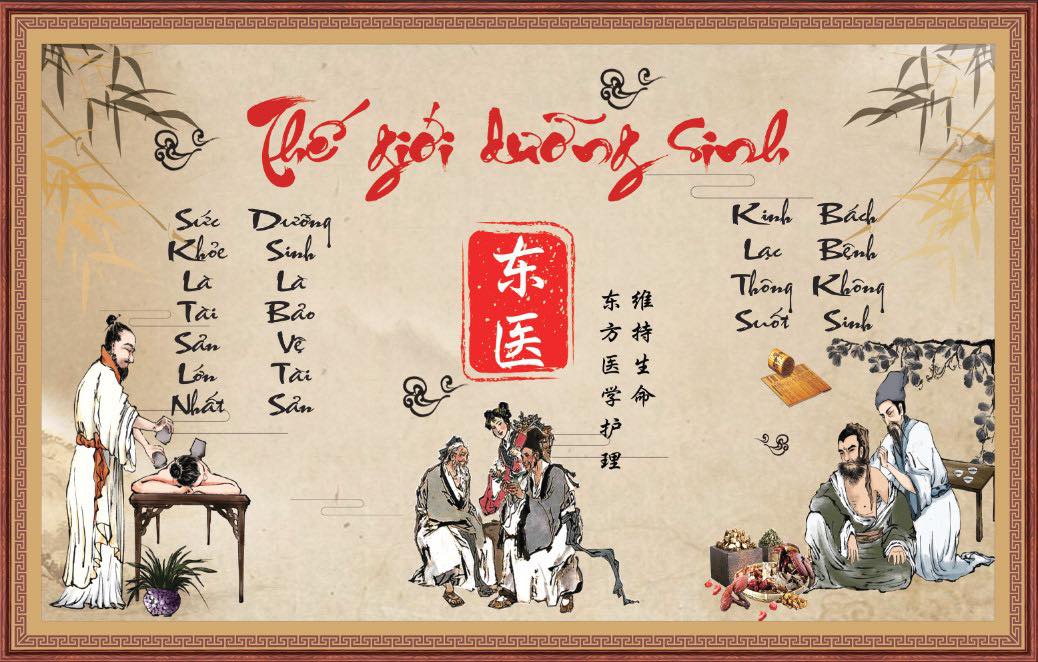 Thế giới dưỡng sinh
Sức Khỏe Là Tài Sản Lớn Nhất
Dưỡng Sinh Là Bảo Vệ Tài Sản
东医
维持生命
东方医学护理
Kinh Lạc Thông Suốt
Bách Bệnh Không Sinh